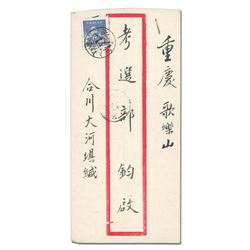 重慶歌樂山
考選部鈞啟
合川大河壩緘